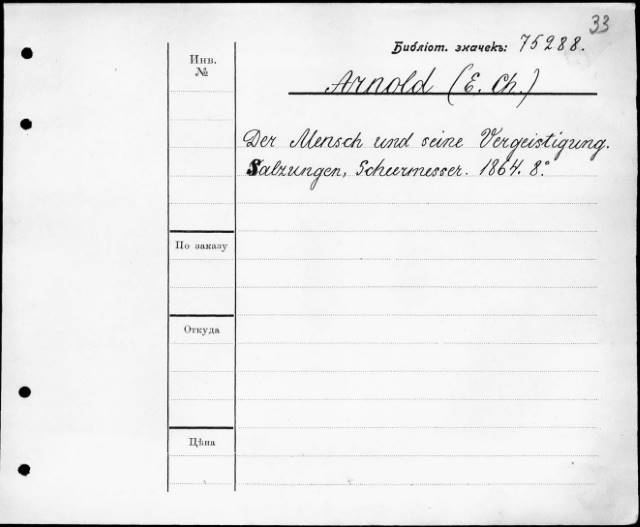 33
Библіот. значекъ: 75288.
Инв. №
Arnold (E. Ch.)
Der Mensch und seine Vergeistigung.
Salzungen, Scheermesser. 1864. 8°
По заказу
Откуда
Цѣна